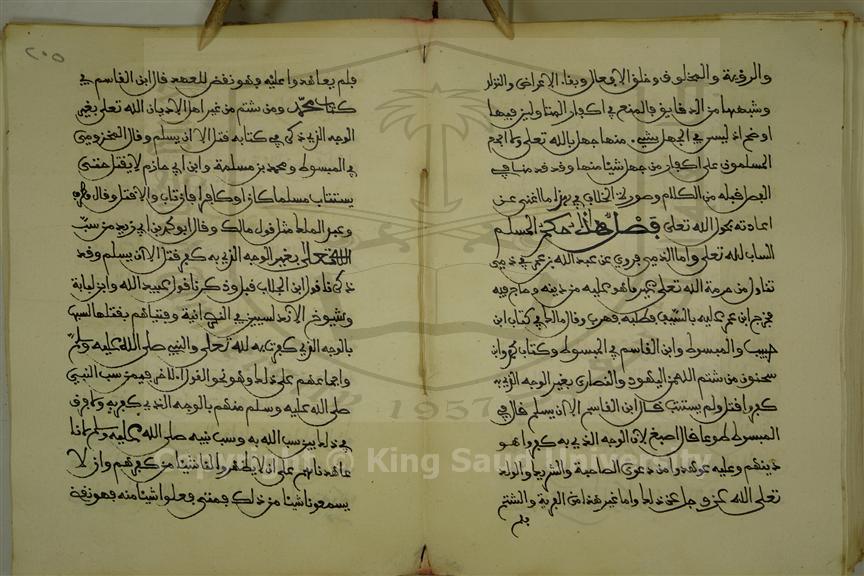 والرؤية والمخلوف وخلق الافعال وبقاء الاعراض والتولد
وشبهها من الدقايق فالمنع في اكفار المتاولين فيها
اوضح اذ ليس في الجهل بشيء منها جهل بالله تعلى ولا اجمع
المسلمون على اكفار من جهل شيئا منها وقد قدمنا في
الفصل قبله من الكلام وصورة الخلاف في هذا ما اغنى عن
اعادته بحول الله تعلى فصل هذا حكم المسلم
الساب لله تعلى واما الذمي فروي عن عبد الله بن عمر في ذمي
تناول من حرمة الله تعلى غير ما هو عليه من دينه وحاج فيه
فخرج ابن عمر عليه بالسيف فطلبه فهرب وقال مالك في كتاب ابن
حبيب والمبسوط وابن القاسم في المبسوط وكتاب محمد وابن
سحنون من شتم الله من اليهود والنصارى بغير الوجه الذي به
كفروا قتل ولم يستتب قال ابن القاسم الا ان يسلم قال في
المبسوط طوعا قال اصبغ لان الوجه الذي به كفروا هو
دينهم وعليه عوهدوا من دعوى الصاحبة والشريك والولد
تعلى الله عز وجل عن ذلك واما غير هذا من الفرية والشتم
فلم
٢٠٥
فلم يعاهدوا عليه فهو نقض للعهد قال ابن القاسم في
كتاب محمد ومن شتم من غير اهل الاديان الله تعلى بغير
الوجه الذي ذكر في كتابه قتل الا ان يسلم وقال المخزومي
في المبسوط ومحمد بن مسلمة وابن ابي حازم لا يقتل حتى
يستتاب مسلما كان او كافرا فان تاب والا قتل وقال مطرف
وعبد الملك مثل قول مالك وقال ابو محمد بن ابي زيد من سب
الله تعالى بغير الوجه الذي به كفر قتل الا ان يسلم وقد
ذكرنا قول ابن الجلاب قبل وذكرنا قول عبيد الله وابن لبابة
وشيوخ الاندلسيين في النصرانية وفتياهم بقتلها لسبها
بالوجه الذي كفرت به لله تعلى والنبي صلى الله عليه وسلم
واجماعهم على ذلك وهو نحو القول الاخر فيمن سب النبي
صلى الله عليه وسلم منهم بالوجه الذي كفر به ولا فرق
في ذلك بين سب الله به وسب نبيه صلى الله عليه وسلم لانا
عاهدناهم على ان لا يظهروا لنا شيئا من كفرهم وان لا
يسمعونا شيئا من ذلك فمتى فعلوا شيئا منه فهو نقض
1957
Copyright © King Saud University